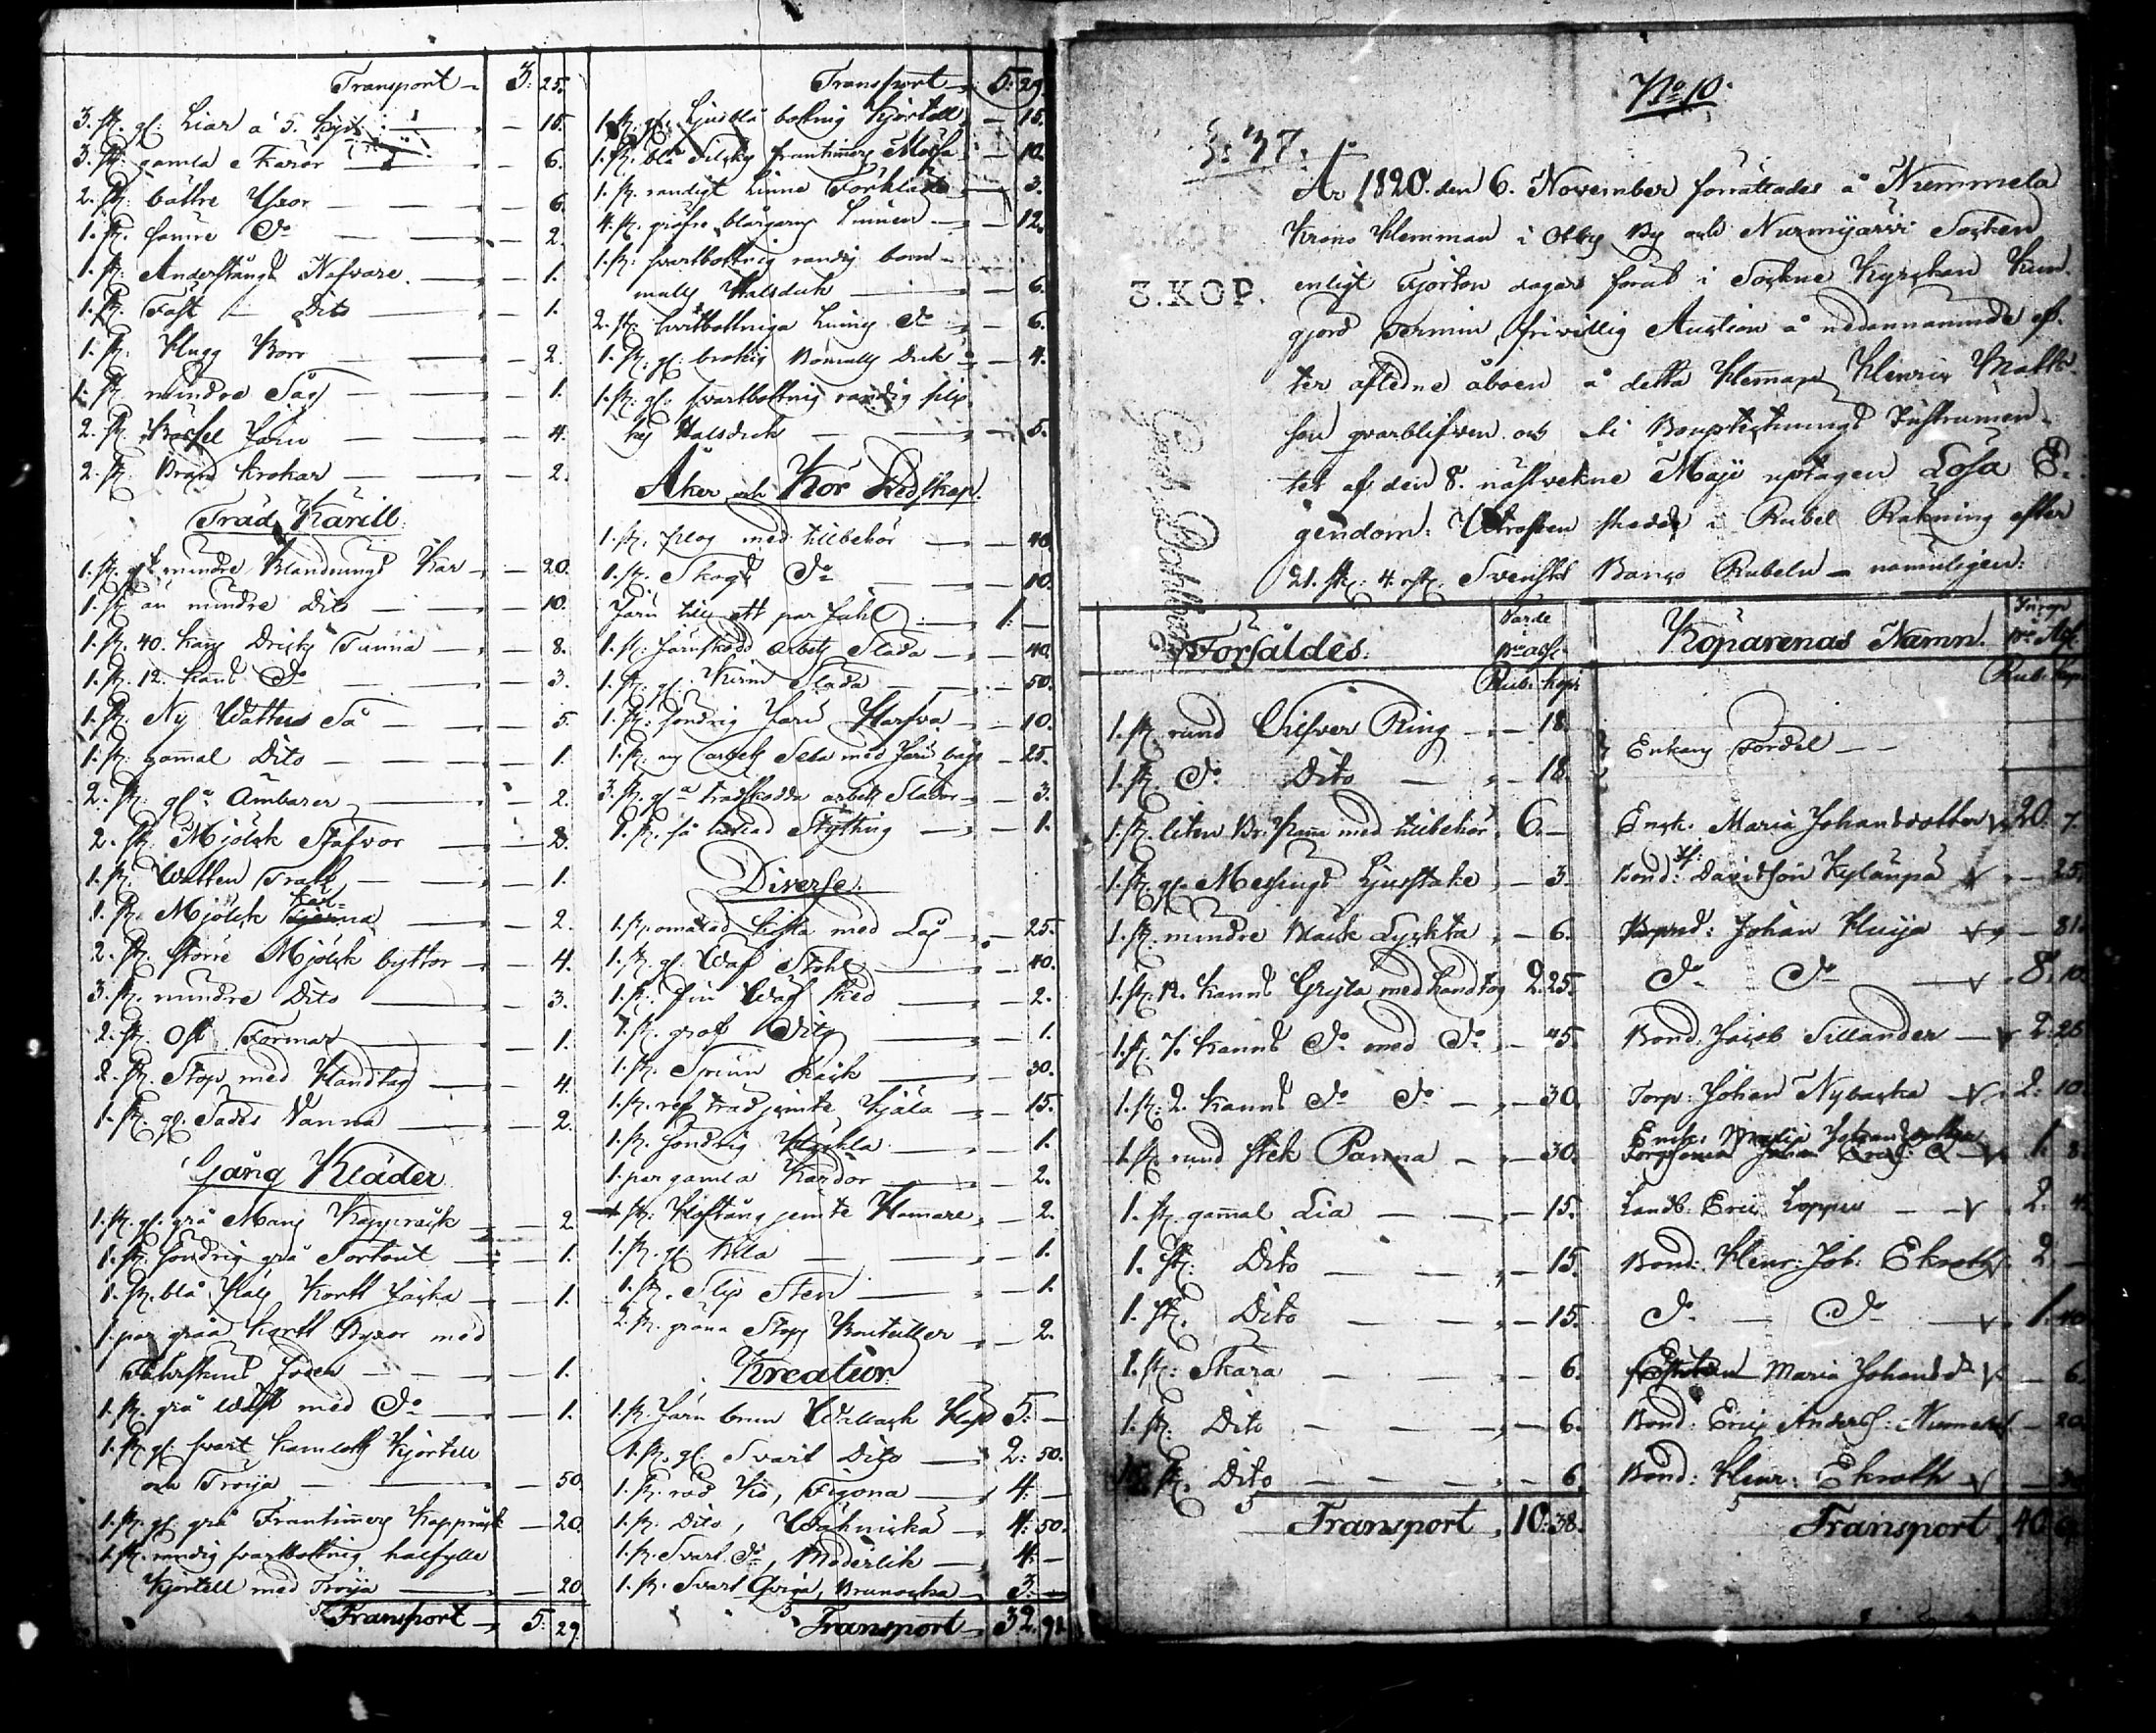 Transport 3: 25.
3. st. gl: Liar a 5. kop: 15.
3. st. gamla Skäror 6.
2. st. bättre Yxor 6.
1. st. sämre do 2.
1. st. Anderstångs Nafvare 1.
1. st. Fast Dito 1.
1. st. Plugg Borr 2.
1. st. mindre Såg 1.
2. st. Jern 4.
2. st. Brand krokar 2.
Träd Kärill.
1. st. gl. mindre Blandnings Kar 20.
1. st. än mindre Dito 10.
1. st. 40. kanns Dricks Tunna 8.
1. st. 12. kanns do 3.
1. st. Ny Wattus Så 5.
1. st. gamal Dito 1.
2. st. gla Ämbarer 2.
2. st. Mjölck Stäfvor 3.
1. st. Watten Tratt 1.
1. st. Mjölck 2.
2. st. större Mjölck byttor 4.
3. st. mindre Dito 3.
2. st. Ost Formar 1.
2. st. Stop med Handtag 4.
1. st. gl. Sädes Vanna 2.
Gång Kläder
1. st. gl. grå Mans Kapprack 2.
1. st. söndrig grå Sortout 1.
1. st. blå Kort Jacka 1.
1. par gråa kortt Byxor med
foder 1.
1. st. grå Wäst med do 1.
1. st. gl. svart kamlotts Kjortell
och Tröija 50.
1. st. gl. grå Fruntimers Kapprack 20.
1. st. randig svartbottnig halfylle
Kjortell med Tröija 20.
Transport 5: 29.
Transport 5: 29.
1. st. gl. Ljusblå bottnig Kjortell 15.
1. st. blå Silkes fruntimers Mössa 10.
1. st. randigt Linne Förkläde 3.
4. st. gröfre blårgarns Linnen 12.
1. st. svartbottnig randig bom-
ulls Halsduk 6.
2. st. hvitbottniga Linns do 6.
1. st. gl. brokig Bomulls Duk 4.
1. st. gl. svartbottnig randig silk
kes Halsduk 5.
Åker och Kör Redskap.
1. st. plog med tillbehör 40.
1. st. Skogs do 10.
Järn till ett par 1. —
1. st. Järnskodd arbets Släda 40.
1. st. gl. Släda 50.
1. st. söndrig Järn Harfva 10.
1. st. ny arbets Sela med Järn 25.
3. st. gla trädskodda arbets Slädor 3.
1. st. 1.
Diverse.
1. st. omålad kista med Lås 25.
1. st. gl. Wäf Stohl 40.
1. st. fin Wäf sked 2.
1. st. grof Dito 1.
1. st. Spinn Råck 30.
1. st. jemte 15.
1. st. söndrig Häckla 1.
1. par gamla Kardor 2.
1. st. Hoftång jemte Hamare 2.
1. st. gl. Bila 1.
1. st. Slip Sten 1.
2. st. gröna Stops Bouteiller 2.
Kreatur
1. st. Järn brun Wallack Häst 5: —
1. st. gl. Svart Dito 2: 50.
1. st. röd Ko, Figona 4: —
1. st. Dito, Wähniska 4: 50.
1. st. Svart do, Moderlik 4: —
1. st. Svart Qviga, Brunocka 3: —
Transport 32. 92.
No 10.
§: 37.
3. KOP.
År 1820. den 6. November förrättades å Nummela
Krono Hemman i Otby By och Nurmijärvi Socken
enligt Fjorton dagar förut i Sockne Kyrckan kun-
gjord Termin, frivillig Auction å nedannämnde ef-
ter aflidne åboen å detta Heman Henric Matts-
son qvarblifven och i Boupteckningss Instrumen-
tet af den 8. nästvekne Maji uptagen Lösa E-
gendom: skedde i Rubel Räkning efter
21. sk: 4. rst. Svenskt Banco Rubeln — namnligen:
Försåldes. Värde Köparenas Namn. Inrop
Rub. kop. Rub. kop.
1. st. rund Silfver Ring 18.
1. st. do Dito 18. Enkans Fördel
1. st. liten Br: Panna med tillbehör 6. — Enck. Maria Johansdotter 20. 7.
1. st. gl. Messings Ljusstake 3. Bond: Davidsson Kylänpä 25.
1. st. mindre Bläck Lyckta 6. Johan Huija 81.
1. st. 12. kanns Gryta med handtag 2. 25. do do 8. 10.
1. st. 7. kanns do med do 45. Bond. Jacob Sillander 2. 26
1. st. 2. kanns do do 30. Torp: Johan Nybacka 2. 10.
1. st. rund stek Panna 30. Enck: Maria Johansdotter 1. 8.
1. st. gammal Lia 15. Landb. Eric Loppus 2. 4.
1. st. Dito 15. Bond. Henr: Joh: Ekroth 2. —
1. st. Dito 15. do do 1. 10
1. st. Skära 6. Maria Johansdr 6.
1. st. Dito 6. Bond: Eric Anders: 20.
st. Dito 6. Bond: Henr: Ekroth
Transport 10. 38. Transport 40.